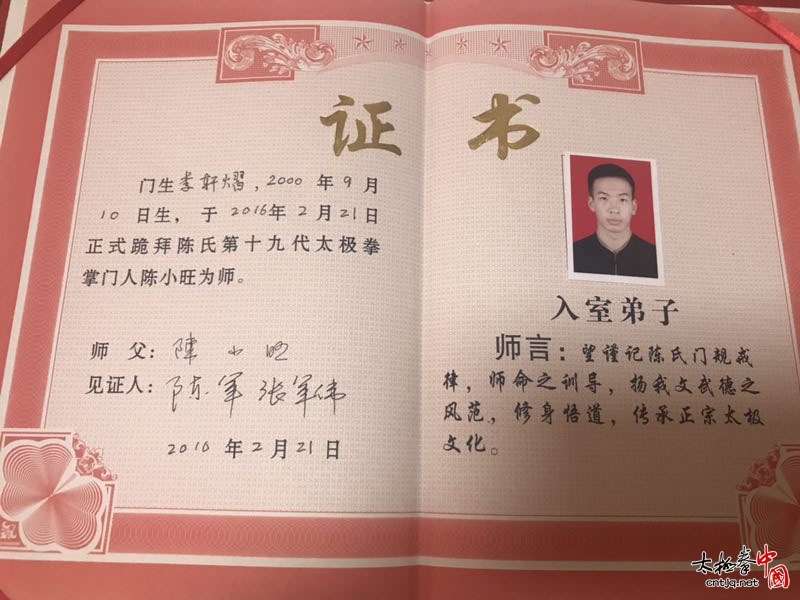 证书
门生李轩熠，2000年9月
10日生，于2016年2月21日
正式跪拜陈氏第十九代太极拳
掌门人陈小旺为师。
师 父：陳小旺
见证人：陈军 张军伟
2016年2月21日
入室弟子
师言：望谨记陈氏门规戒
律，师命之训导，扬我文武德之
风范，修身悟道，传承正宗太极
文化。
太极拳中國
cntjq.net